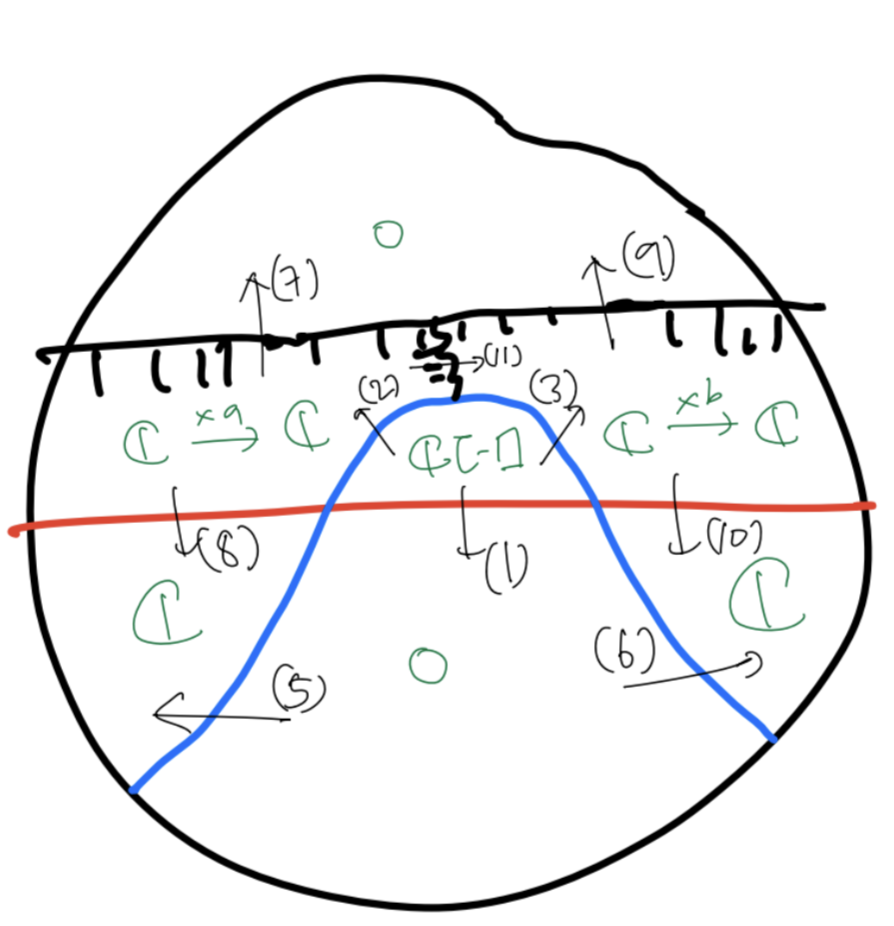 0
(7)
(9)
(11)
(2)
(3)
ℂ ×a→ ℂ
ℂ[-1]
ℂ ×b→ ℂ
(8)
(1)
(10)
ℂ
ℂ
(5)
0
(6)